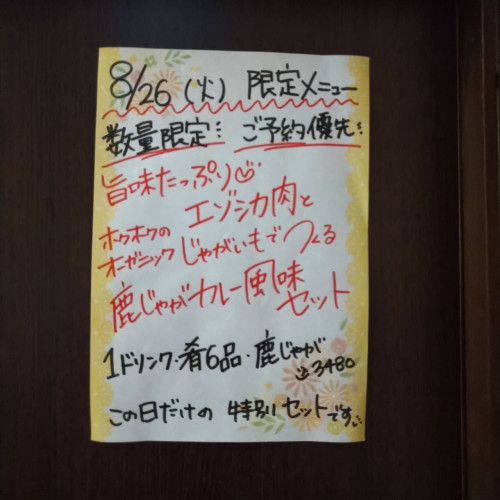 8/26(火) 限定メニュー
数量限定! ご予約優先!
旨味たっぷり
エゾシカ肉と
ホクホクの
オーガニックじゃがいもでつくる
鹿じゃがカレー風味
セット
1ドリンク・肴6品・鹿じゃが
3480
この日だけの 特別セットです